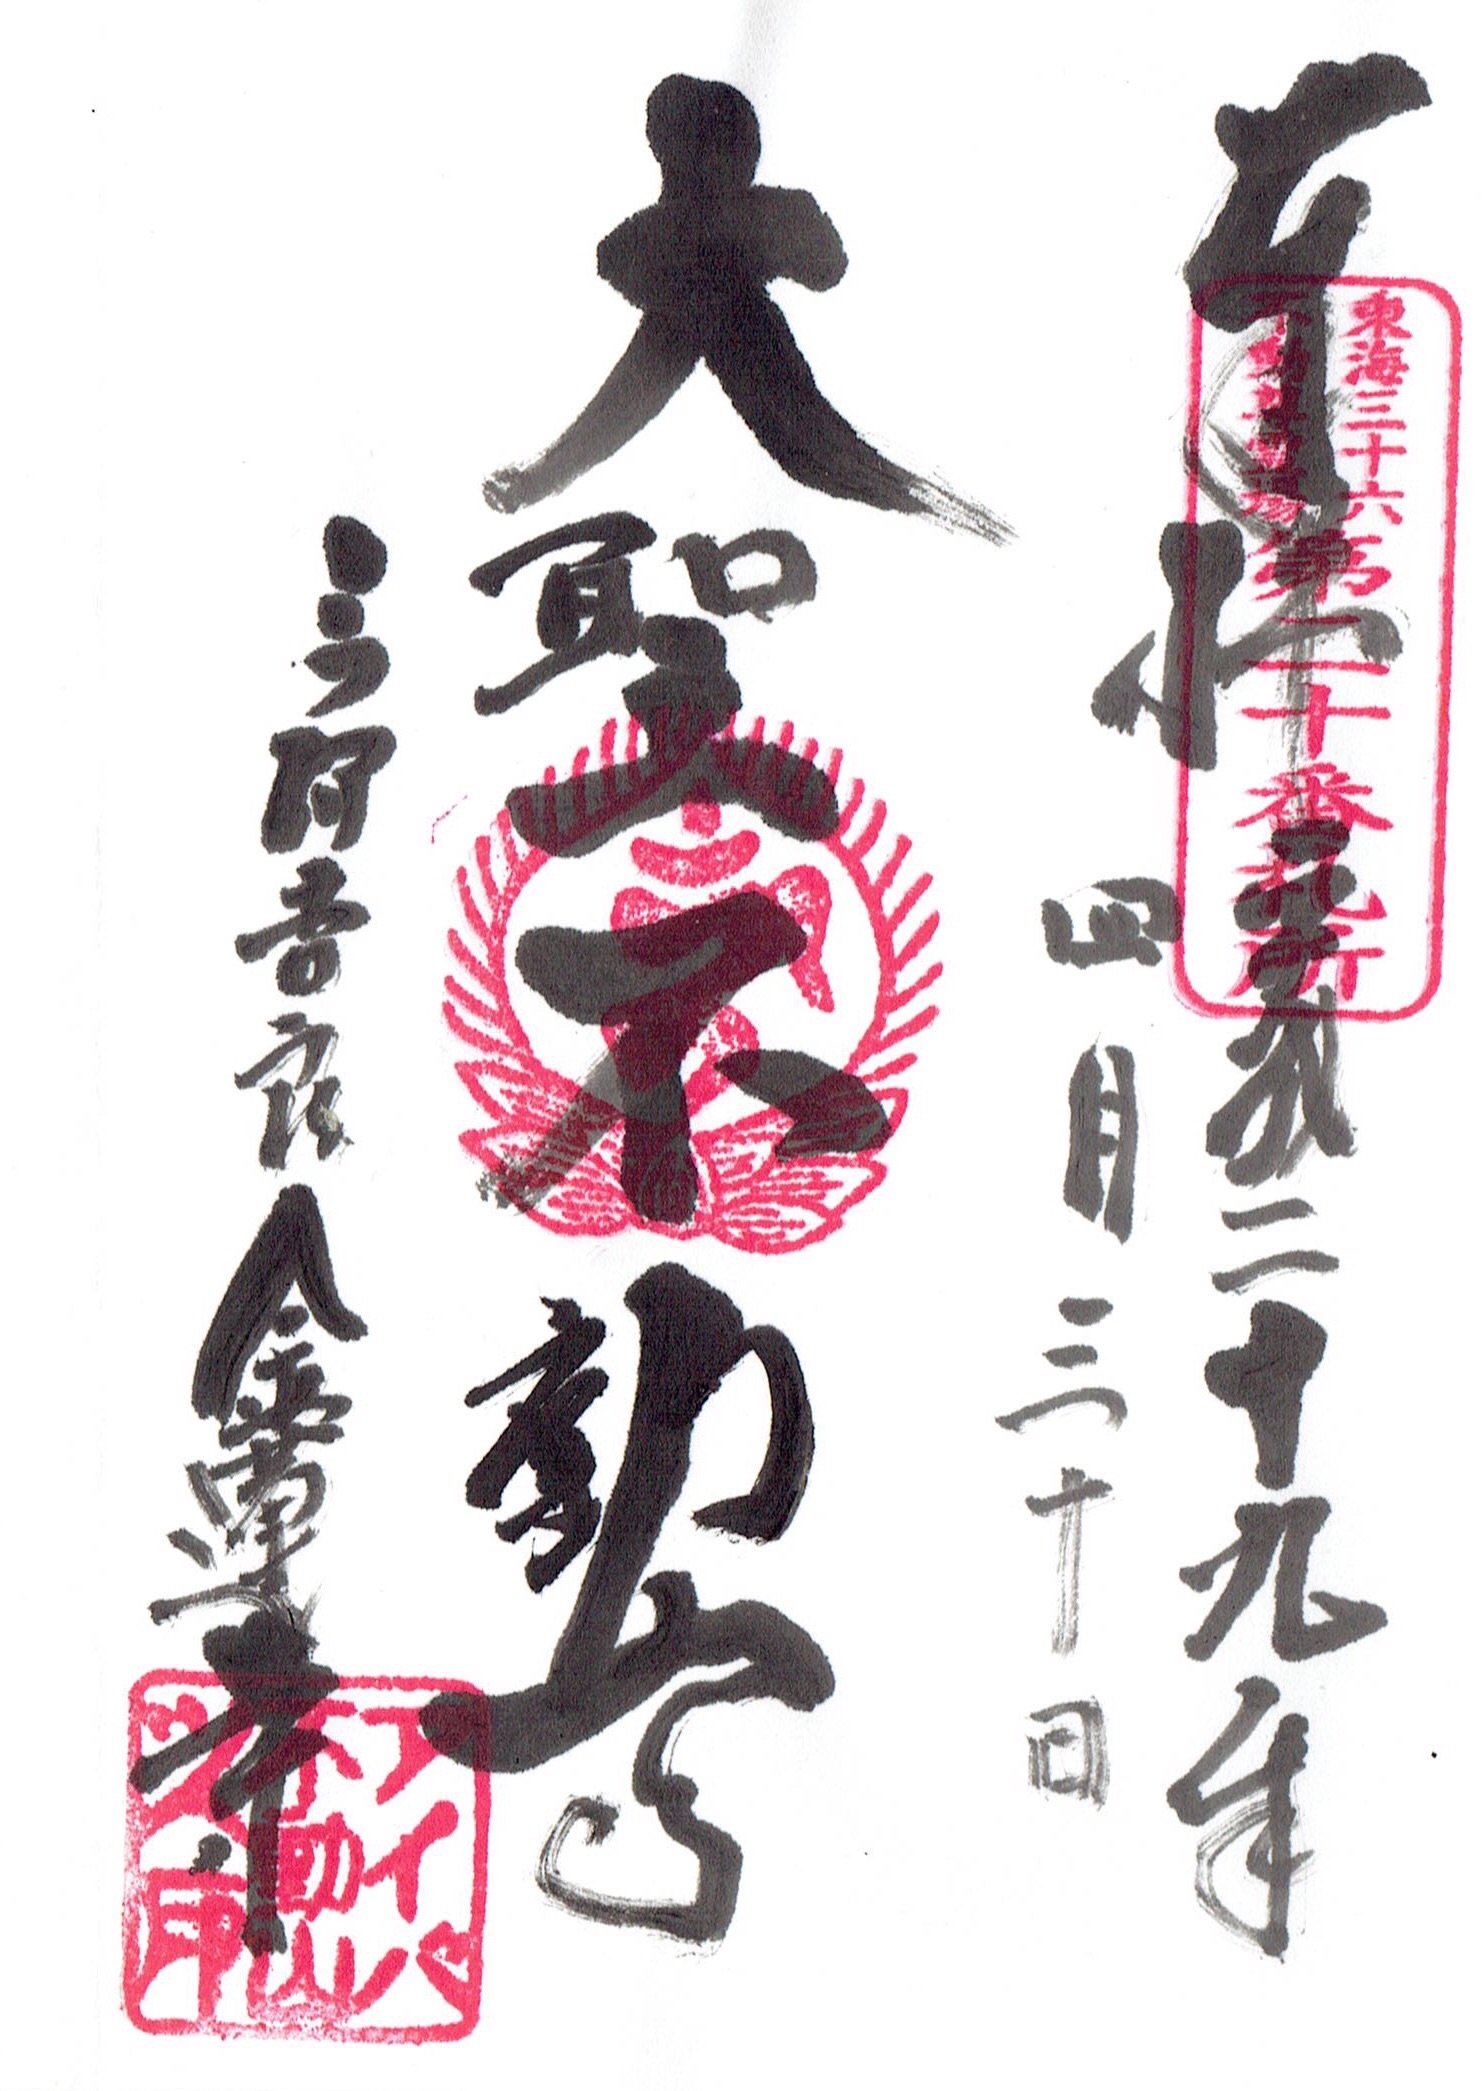 奉拝
平成二十九年
四月三十日
東海三十六
不動尊霊場
第二十番札所
大聖不動尊
三河吉良 金蓮寺
アイバ
不動山
之印